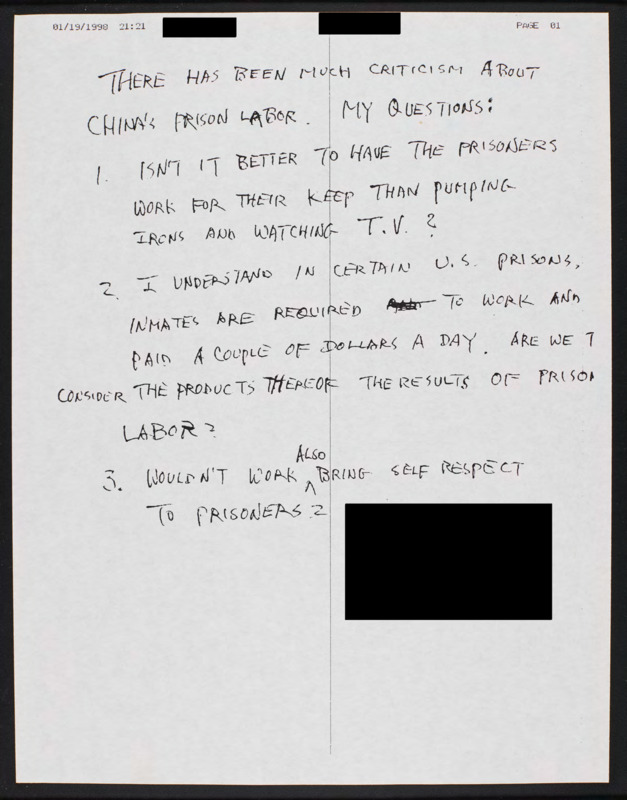 01/19/1998 21:21 PAGE 01
THERE HAS BEEN MUCH CRITICISM ABOUT
CHINA'S PRISON LABOR. MY QUESTIONS:
1. ISN'T IT BETTER TO HAVE THE PRISONERS
WORK FOR THEIR KEEP THAN PUMPING
IRONS AND WATCHING T.V.?
2. I UNDERSTAND IN CERTAIN U.S. PRISONS,
INMATES ARE REQUIRED TO WORK AND
PAID A COUPLE OF DOLLARS A DAY. ARE WE T
CONSIDER THE PRODUCTS THEREOF THE RESULTS OF PRISON
LABOR?
ALSO
3. WOULDN'T WORK BRING SELF RESPECT
TO PRISONERS?